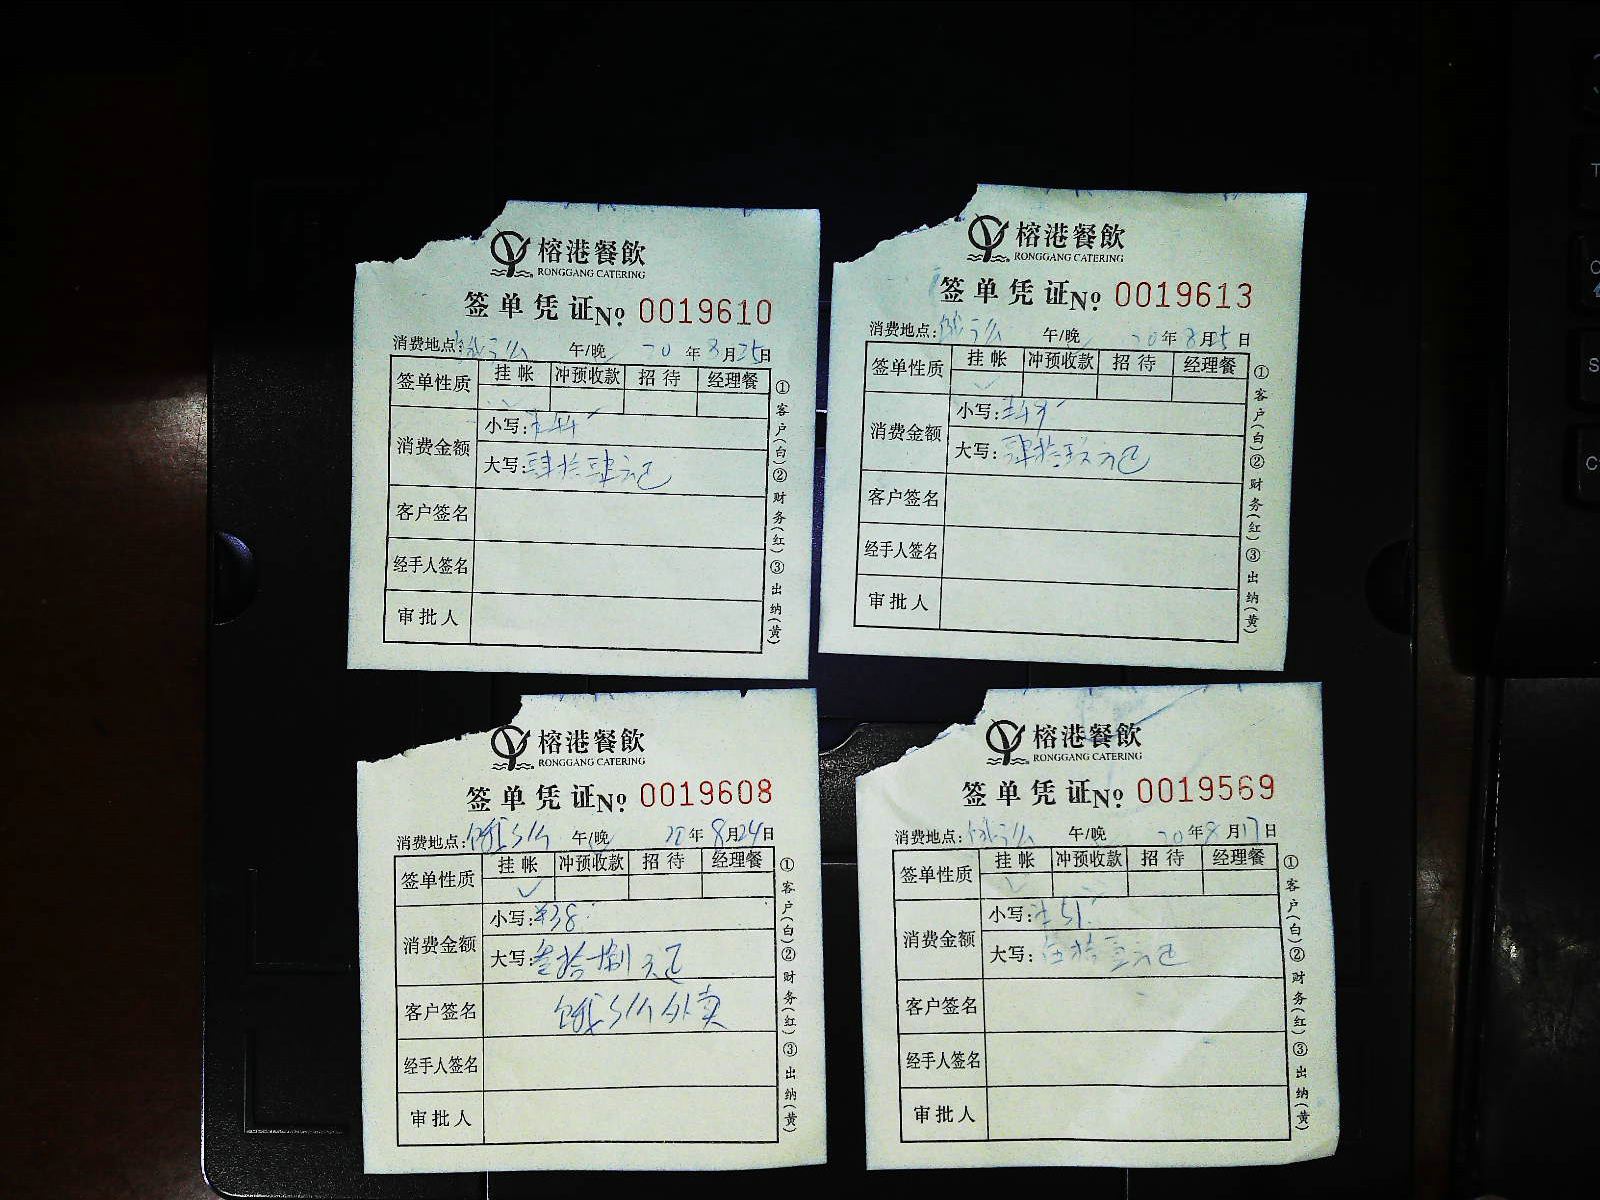 榕港餐飲
RONGGANG CATERING
签单凭证No. 0019610
消费地点: 饿了么 午/晚 20年8月25日
签单性质 挂帐 冲预收款 招待 经理餐
消费金额 小写:¥44
大写:肆拾肆元正
客户签名
经手人签名
审批人
①客户(白)②财务(红)③出纳(黄)
榕港餐飲
RONGGANG CATERING
签单凭证No. 0019613
消费地点: 饿了么 午/晚 20年8月25日
签单性质 挂帐 冲预收款 招待 经理餐
消费金额 小写:
大写:肆拾玖元正
客户签名
经手人签名
审批人
①客户(白)②财务(红)③出纳(黄)
榕港餐飲
RONGGANG CATERING
签单凭证No. 0019608
消费地点: 饿了么 午/晚 20年8月24日
签单性质 挂帐 冲预收款 招待 经理餐
消费金额 小写:¥38
大写:叁拾捌元正
客户签名 饿了么外卖
经手人签名
审批人
①客户(白)②财务(红)③出纳(黄)
榕港餐飲
RONGGANG CATERING
签单凭证No. 0019569
消费地点: 饿了么 午/晚 20年8月17日
签单性质 挂帐 冲预收款 招待 经理餐
消费金额 小写:¥51
大写:伍拾壹元正
客户签名
经手人签名
审批人
①客户(白)②财务(红)③出纳(黄)